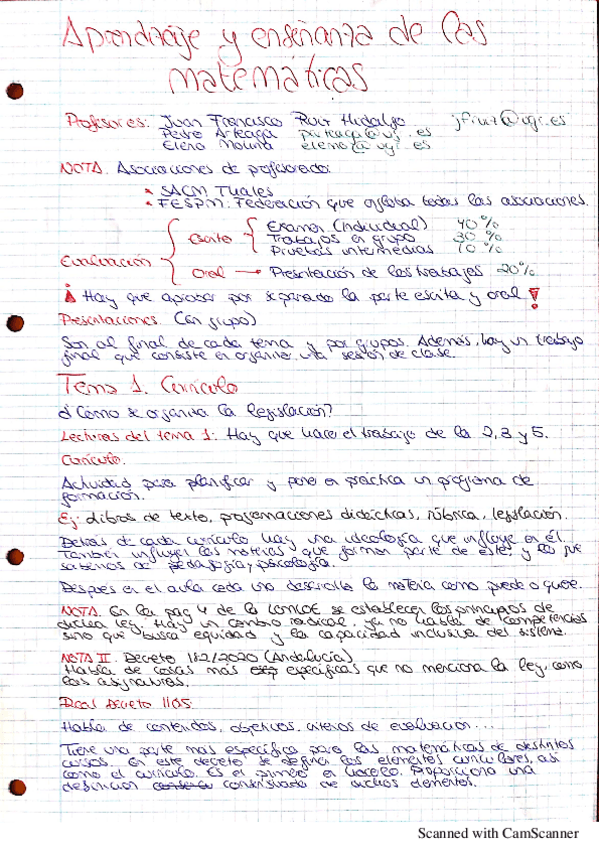 Aprendizaje y enseñanza de las
matemáticas
Profesores: Juan Francisco Ruiz Hidalgo jfruiz@ugr.es
Pedro Arteaga parteaga@ugr.es
Elena Molina elena@ugr.es
NOTA. Asociaciones de profesorado:
SAEM Thales
FESPM: Federación que engloba todas las asociaciones.
Examen (individual) 40%
Escrito Trabajos en grupo 30%
Pruebas intermedias 10%
Evaluación
Oral → Presentación de los trabajos 20%
Hay que aprobar por separado la parte escrita y oral!
Presentaciones. (en grupo)
Son al final de cada tema y por grupos. Además, hay un trabajo
final que consiste en organizar una sesión de clase.
Tema 1. Currículo
¿Cómo se organiza la legislación?
Lecturas del tema 1: Hay que hacer el trabajo de la 2, 3 y 5.
Currículo.
Actividad para planificar y poner en práctica un programa de
formación.
Ej: libros de texto, programaciones didácticas, rúbrica, legislación.
Detrás de cada currículo hay una ideología que influye en él.
También influyen las materias que forman parte de este y lo que
sabemos de pedagogía y psicología.
Después en el aula cada uno desarrolla la materia como puede o quiere.
NOTA. En la pag 4 de la LOMLOE se establecen los principios de
dicha ley. Hay un cambio radical, ya no habla de competencias
sino que busca equidad y la capacidad inclusiva del sistema.
NOTA II. Decreto 182/2020 (Andalucía)
Habla de cosas más específicas que no menciona la ley, como
las asignaturas.
Real Decreto 1105
Habla de contenidos, objetivos, criterios de evaluación...
Tiene una parte más específica para las matemáticas de distintos
cursos. En este decreto se definen los elementos curriculares, así
como el currículo. Es el primero en hacerlo. Proporciona una
definición consensuada de dichos elementos.
Scanned with CamScanner